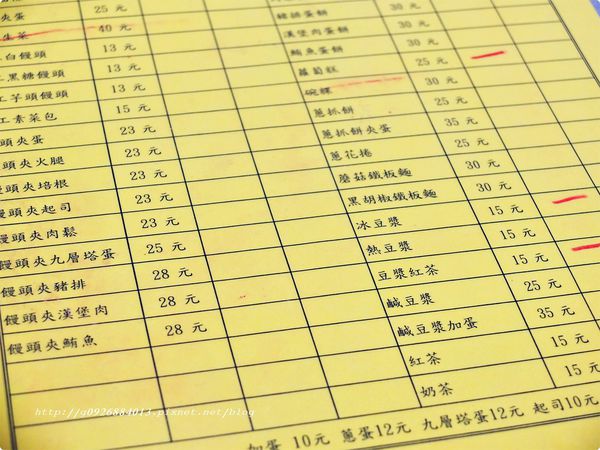 夾蛋 25 元
生菜 40 元
白饅頭 13 元
黑糖饅頭 13 元
芋頭饅頭 13 元
素菜包 15 元
饅頭夾蛋 23 元
饅頭夾火腿 23 元
饅頭夾培根 23 元
饅頭夾起司 23 元
饅頭夾肉鬆 23 元
饅頭夾九層塔蛋 25 元
饅頭夾豬排 28 元
饅頭夾漢堡肉 28 元
饅頭夾鮪魚 28 元
豬排蛋餅 30 元
漢堡肉蛋餅 30 元
鮪魚蛋餅 30 元
蘿蔔糕 25 元
碗粿 30 元
蔥抓餅 25 元
蔥抓餅夾蛋 35 元
蔥花捲 25 元
蘑菇鐵板麵 30 元
黑胡椒鐵板麵 30 元
冰豆漿 15 元
熱豆漿 15 元
豆漿紅茶 15 元
鹹豆漿 25 元
鹹豆漿加蛋 35 元
紅茶 15 元
奶茶 15 元
加蛋 10元 蔥蛋12元 九層塔蛋12元 起司10元
http://a0926884013.pixnet.net/blog